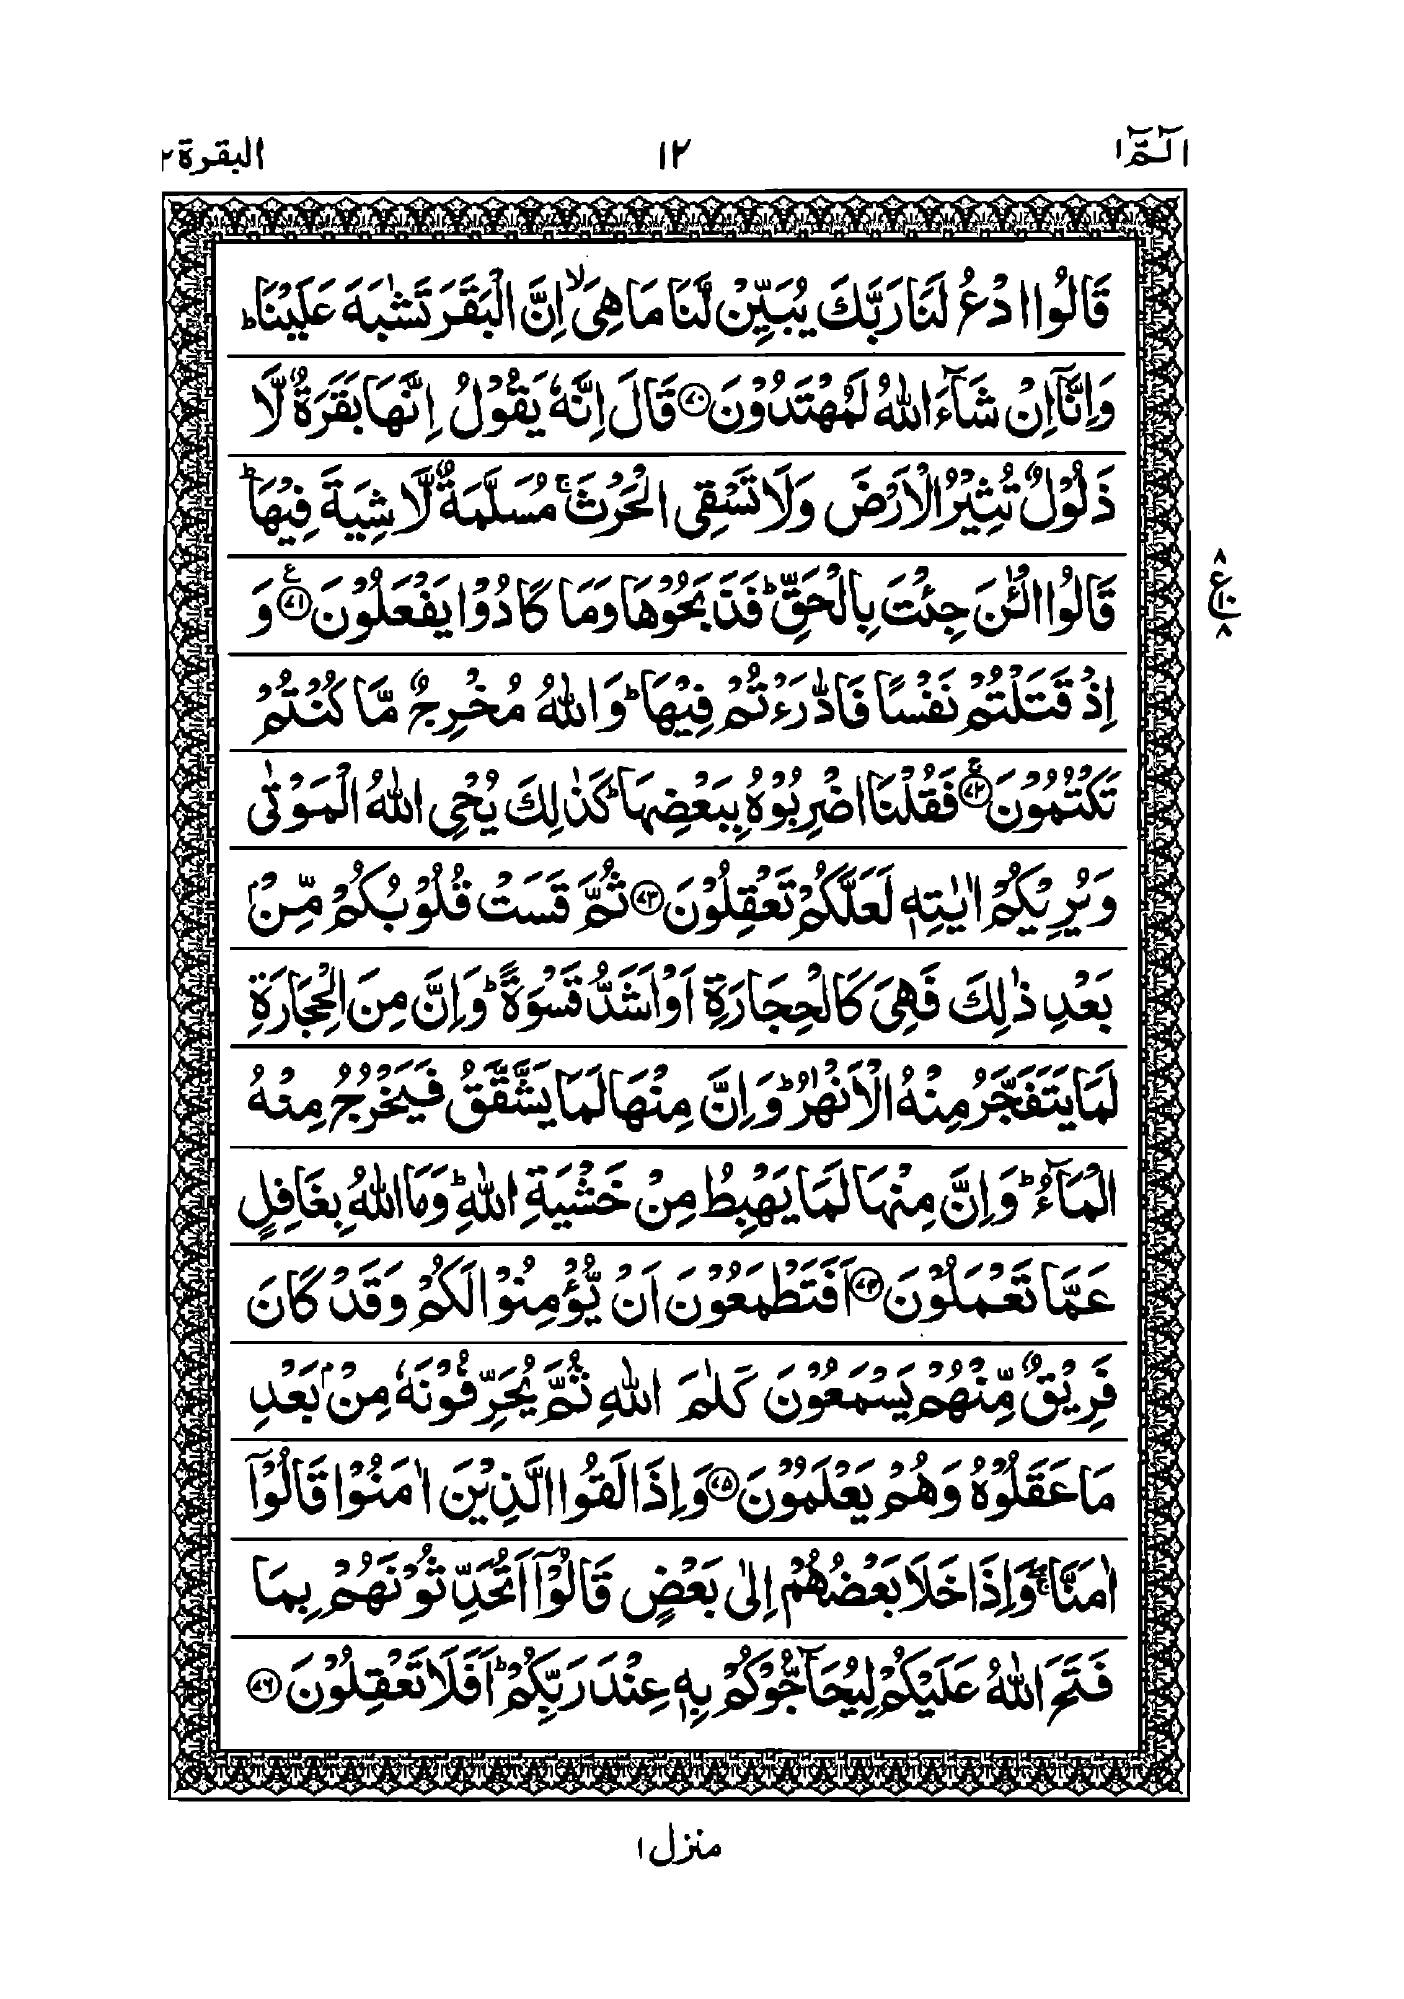 الٓمّٓ ١
١٢
البقرة ٢
قَالُوا ادْعُ لَنَا رَبَّكَ يُبَيِّنْ لَّنَا مَا هِيَ ۙ اِنَّ الْبَقَرَ تَشٰبَهَ عَلَيْنَا ؕ
وَاِنَّاۤ اِنْ شَآءَ اللّٰهُ لَمُهْتَدُوْنَ ۝۷۰ قَالَ اِنَّهٗ يَقُوْلُ اِنَّهَا بَقَرَةٌ لَّا
ذَلُوْلٌ تُثِيْرُ الْاَرْضَ وَلَا تَسْقِي الْحَرْثَ ۚ مُسَلَّمَةٌ لَّا شِيَةَ فِيْهَا ؕ
قَالُوا الْـٰٔنَ جِئْتَ بِالْحَقِّ ؕ فَذَبَحُوْهَا وَمَا كَادُوْا يَفْعَلُوْنَ ۝۷۱ ع وَ
ع
٨
١٠
٨
اِذْ قَتَلْتُمْ نَفْسًا فَادّٰرَءْتُمْ فِيْهَا ؕ وَاللّٰهُ مُخْرِجٌ مَّا كُنْتُمْ
تَكْتُمُوْنَ ۝۷۲ ۚ فَقُلْنَا اضْرِبُوْهُ بِبَعْضِهَا ؕ كَذٰلِكَ يُحْيِ اللّٰهُ الْمَوْتٰى
وَيُرِيْكُمْ اٰيٰتِهٖ لَعَلَّكُمْ تَعْقِلُوْنَ ۝۷۳ ثُمَّ قَسَتْ قُلُوْبُكُمْ مِّنْۢ
بَعْدِ ذٰلِكَ فَهِيَ كَالْحِجَارَةِ اَوْ اَشَدُّ قَسْوَةً ؕ وَاِنَّ مِنَ الْحِجَارَةِ
لَمَا يَتَفَجَّرُ مِنْهُ الْاَنْهٰرُ ؕ وَاِنَّ مِنْهَا لَمَا يَشَّقَّقُ فَيَخْرُجُ مِنْهُ
الْمَآءُ ؕ وَاِنَّ مِنْهَا لَمَا يَهْبِطُ مِنْ خَشْيَةِ اللّٰهِ ؕ وَمَا اللّٰهُ بِغَافِلٍ
عَمَّا تَعْمَلُوْنَ ۝۷۴ اَفَتَطْمَعُوْنَ اَنْ يُّؤْمِنُوْا لَكُمْ وَقَدْ كَانَ
فَرِيْقٌ مِّنْهُمْ يَسْمَعُوْنَ كَلٰمَ اللّٰهِ ثُمَّ يُحَرِّفُوْنَهٗ مِنْۢ بَعْدِ
مَا عَقَلُوْهُ وَهُمْ يَعْلَمُوْنَ ۝۷۵ وَاِذَا لَقُوا الَّذِيْنَ اٰمَنُوْا قَالُوْۤا
اٰمَنَّا ۖۚ وَاِذَا خَلَا بَعْضُهُمْ اِلٰى بَعْضٍ قَالُوْۤا اَتُحَدِّثُوْنَهُمْ بِمَا
فَتَحَ اللّٰهُ عَلَيْكُمْ لِيُحَآجُّوْكُمْ بِهٖ عِنْدَ رَبِّكُمْ ؕ اَفَلَا تَعْقِلُوْنَ ۝۷۶
منزل ١